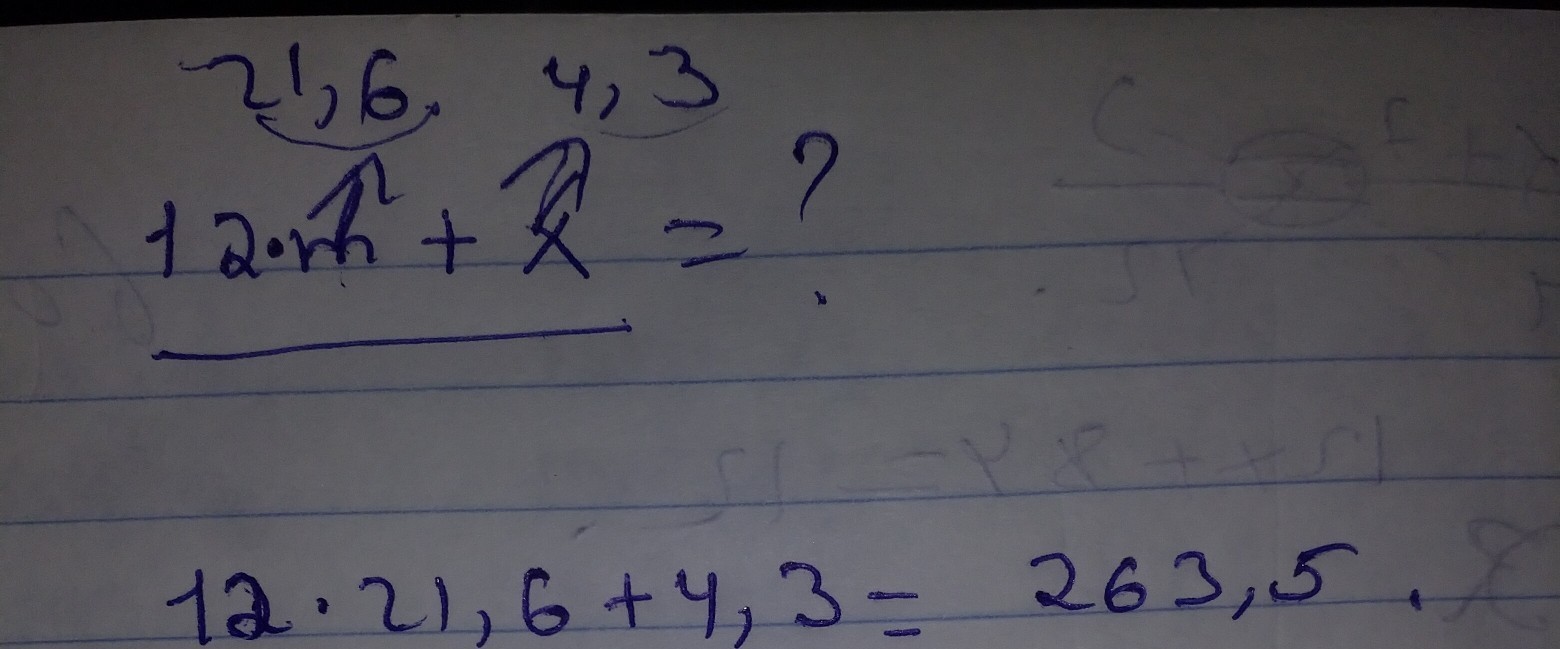 21,6. 4,3
12·m + x = ?
12·21,6+4,3= 263,5.